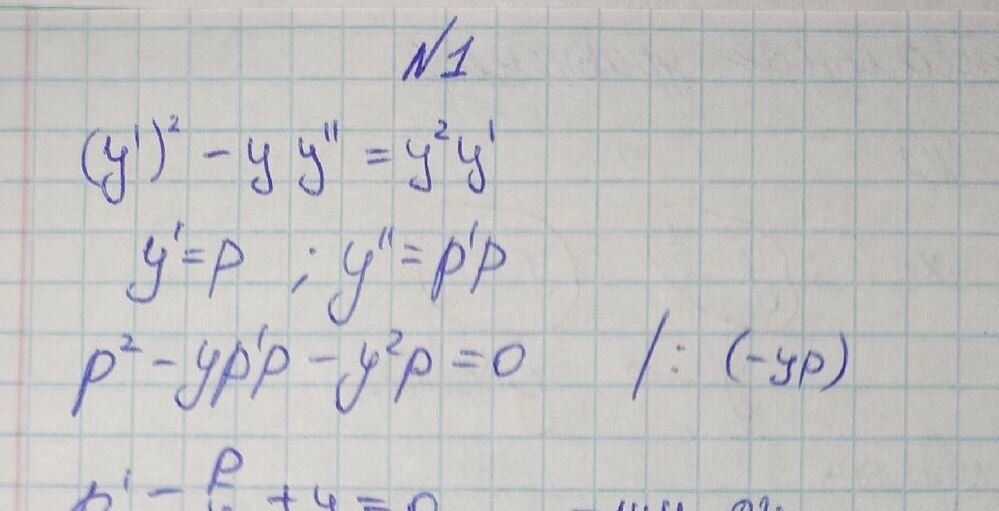 №1
(y')² - y y'' = y²y'
y' = p ; y'' = p'p
p² - yp'p - y²p = 0 /: (-yp)
p' - p/y + y = 0